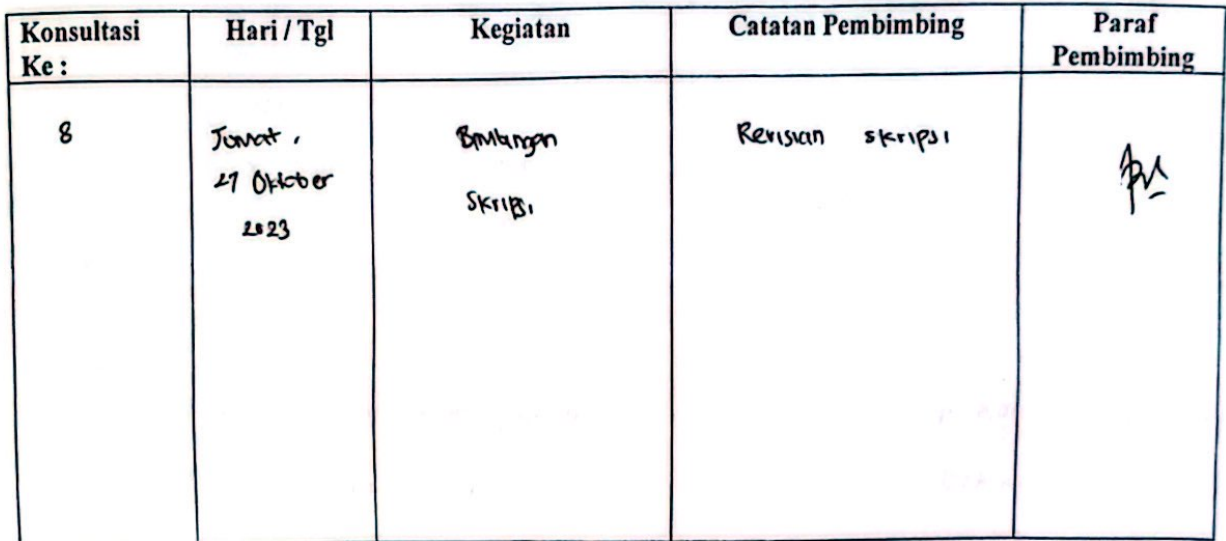 Konsultasi Ke :
Hari / Tgl
Kegiatan
Catatan Pembimbing
Paraf Pembimbing
8
Jumat,
27 Oktober
2023
Bimbingan
Skripsi
Revisian skripsi